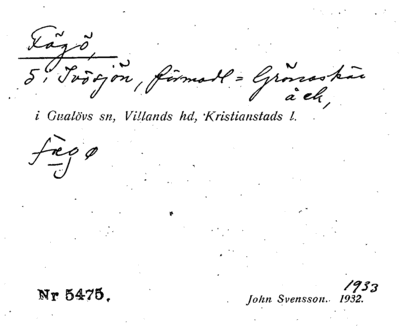 Fägö,
ö i Ivösjön, förmodl = Grönaskär
å ek,
i Gualövs sn, Villands hd, Kristianstads l.
fægø
1933
Nr 5475. John Svensson. 1932.